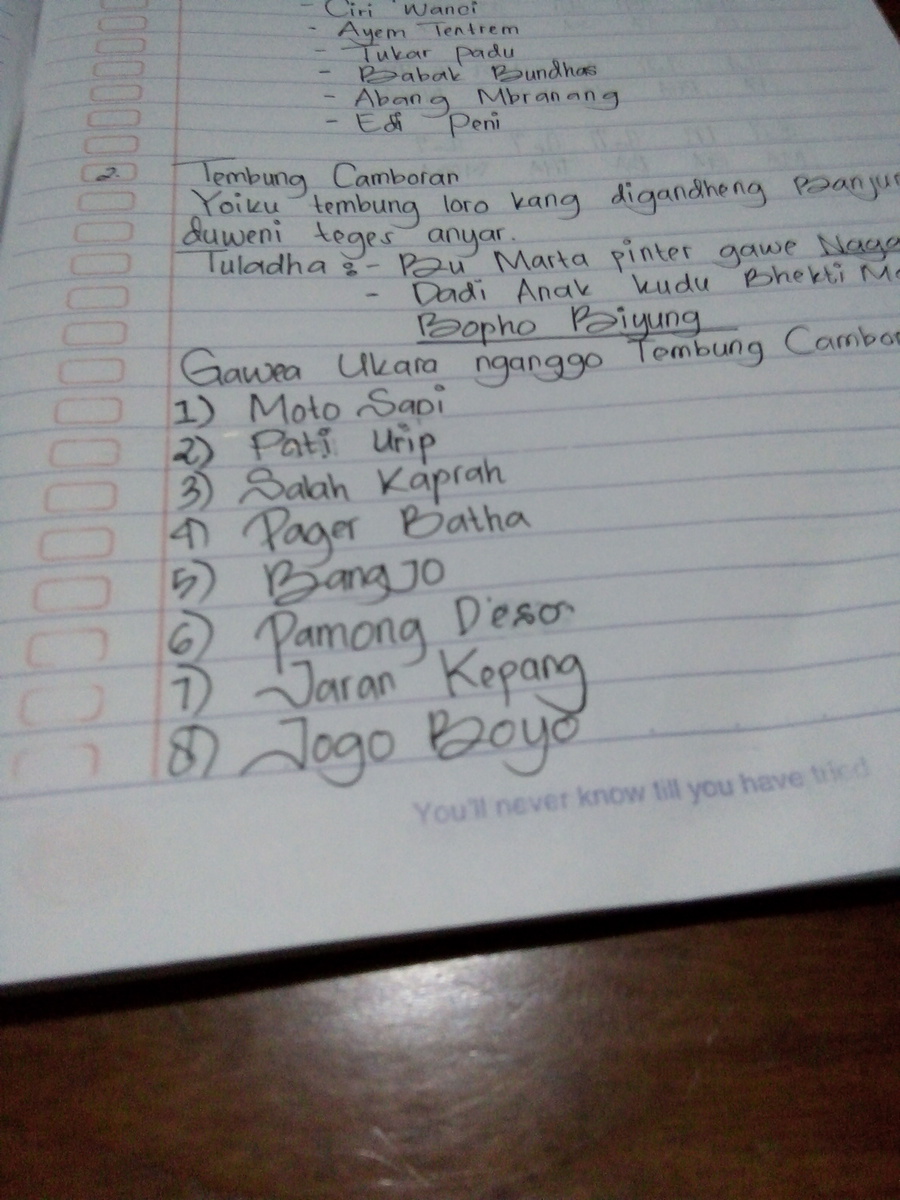 - Ciri Wanci
- Ayem Tentrem
- Tukar padu
- Babak Bundhas
- Abang Mbranang
- Edi Peni
2. Tembung Camboran
Yoiku tembung loro kang digandheng Banjur
duweni teges anyar.
Tuladha : - Bu Marta pinter gawe Naga
- Dadi Anak kudu Bhekti
Bopho Biyung
Gawea Ukara nganggo Tembung Cambor
1) Moto Sapi
2) Pati Urip
3) Salah Kaprah
4) Pager Batha
5) Bang JO
6) Pamong Deso
7) Jaran Kepang
8) Jogo Boyo
You'll never know till you have tried